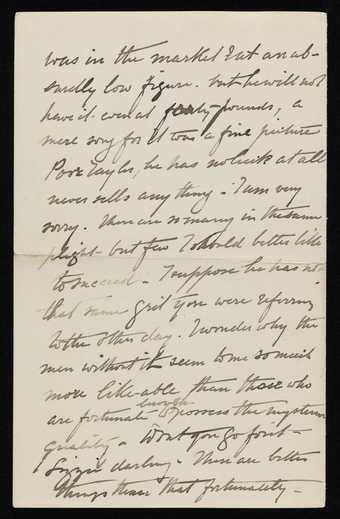 was in the market & at an ab-
surdly low figure. but he will not
have it. even at forty pounds, a
mere song for it was a fine picture
Poor Taylor, he has no luck at all
never sells anything - I am very
sorry. There are so many in the same
plight - but few I should better like
to succeed - I suppose he has not
that same grit you were referring
to the other day. I wonder why the
men without it seem to me so much
more like-able than those who
are fortunate enough to possess the mysterious
quality - Don't you go for it -
Lizzie darling - There are better
things than that fortunately -